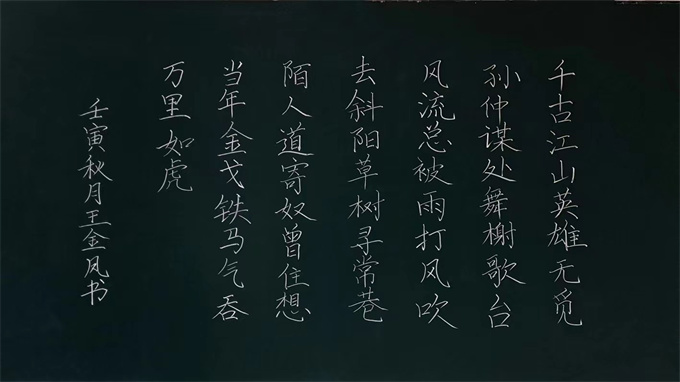 千古江山英雄无觅
孙仲谋处舞榭歌台
风流总被雨打风吹
去斜阳草树寻常巷
陌人道寄奴曾住想
当年金戈铁马气吞
万里如虎
壬寅秋月王金凤书